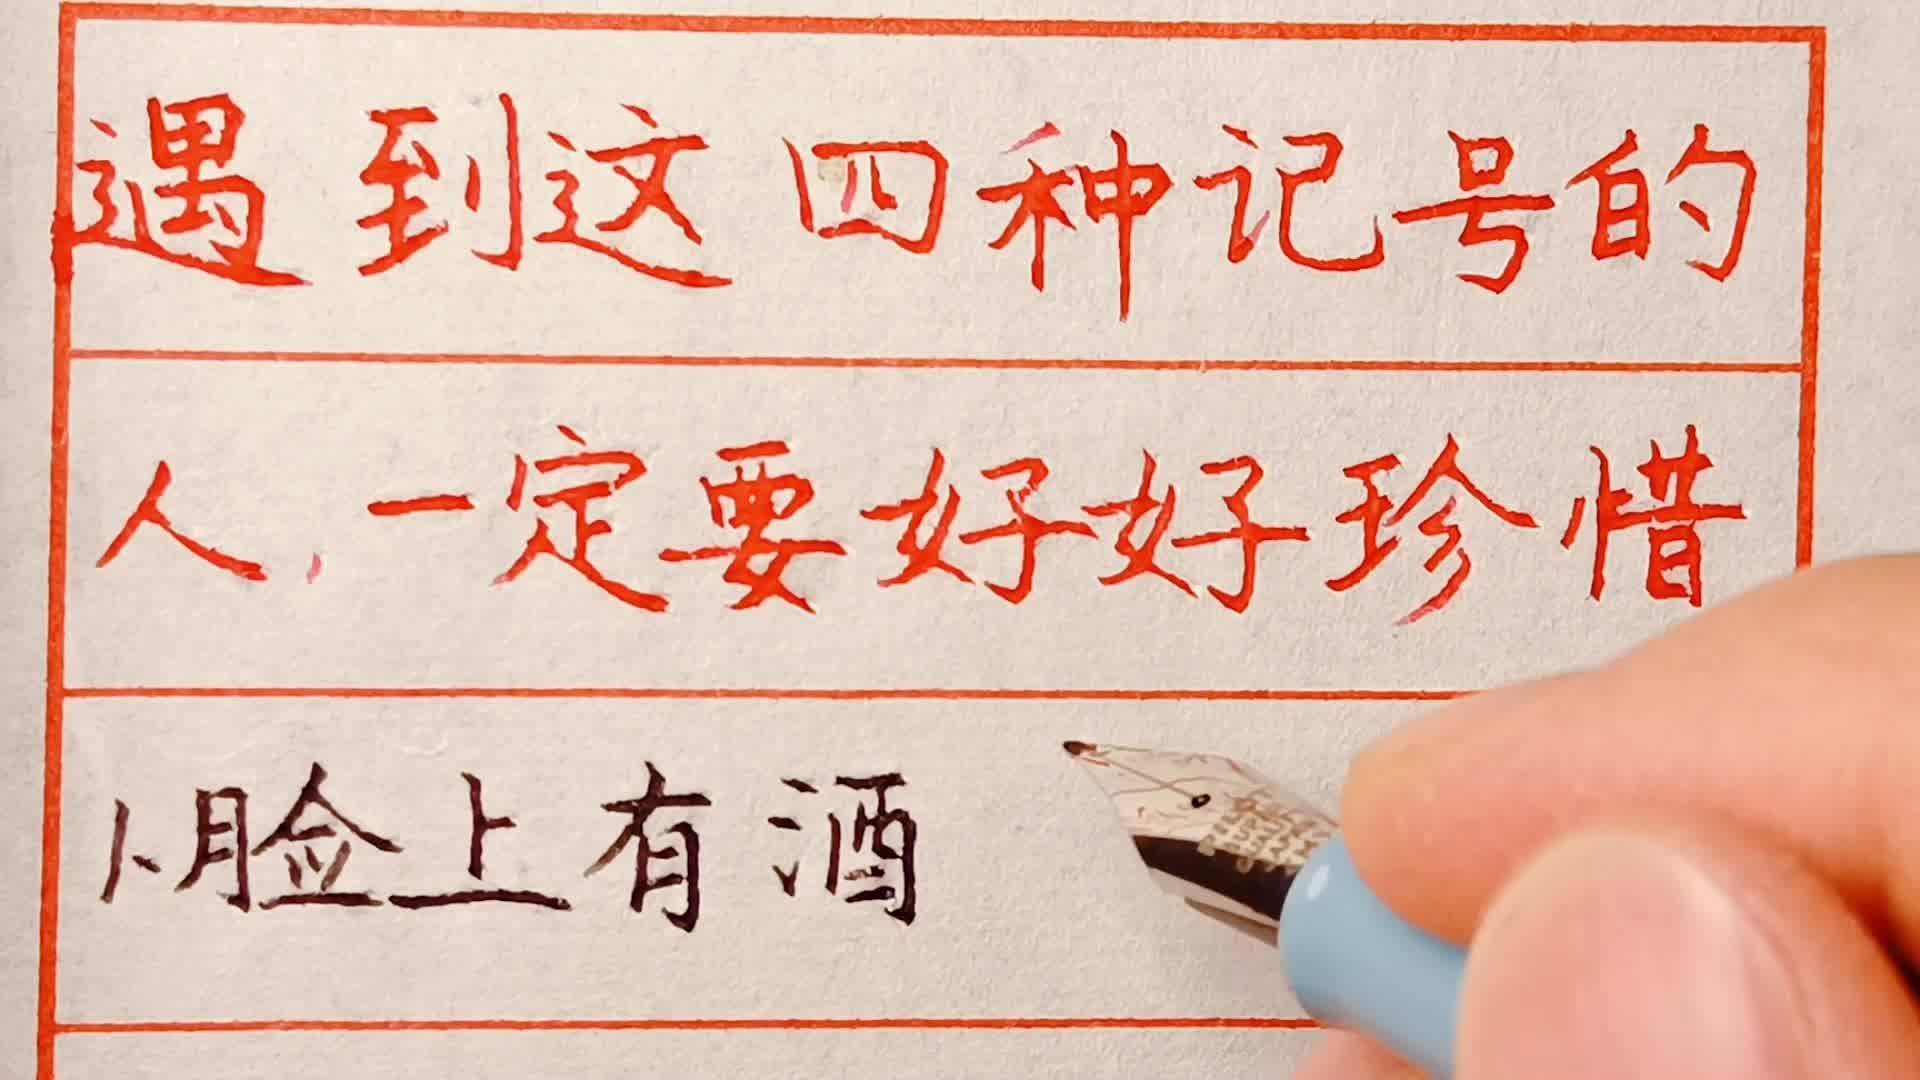 遇到这四种记号的
人,一定要好好珍惜
1、脸上有酒